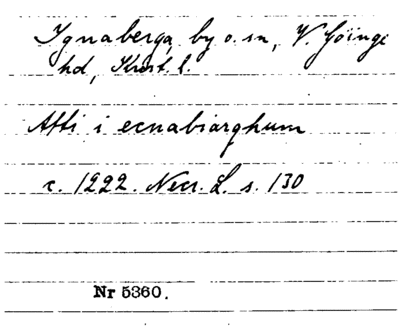 Ignaberga, by o. sn, V. Göinge
hd, Krist. l.
Atti i ecnabiarghum
c. 1222. Necr. L. s. 130
Nr 5360.